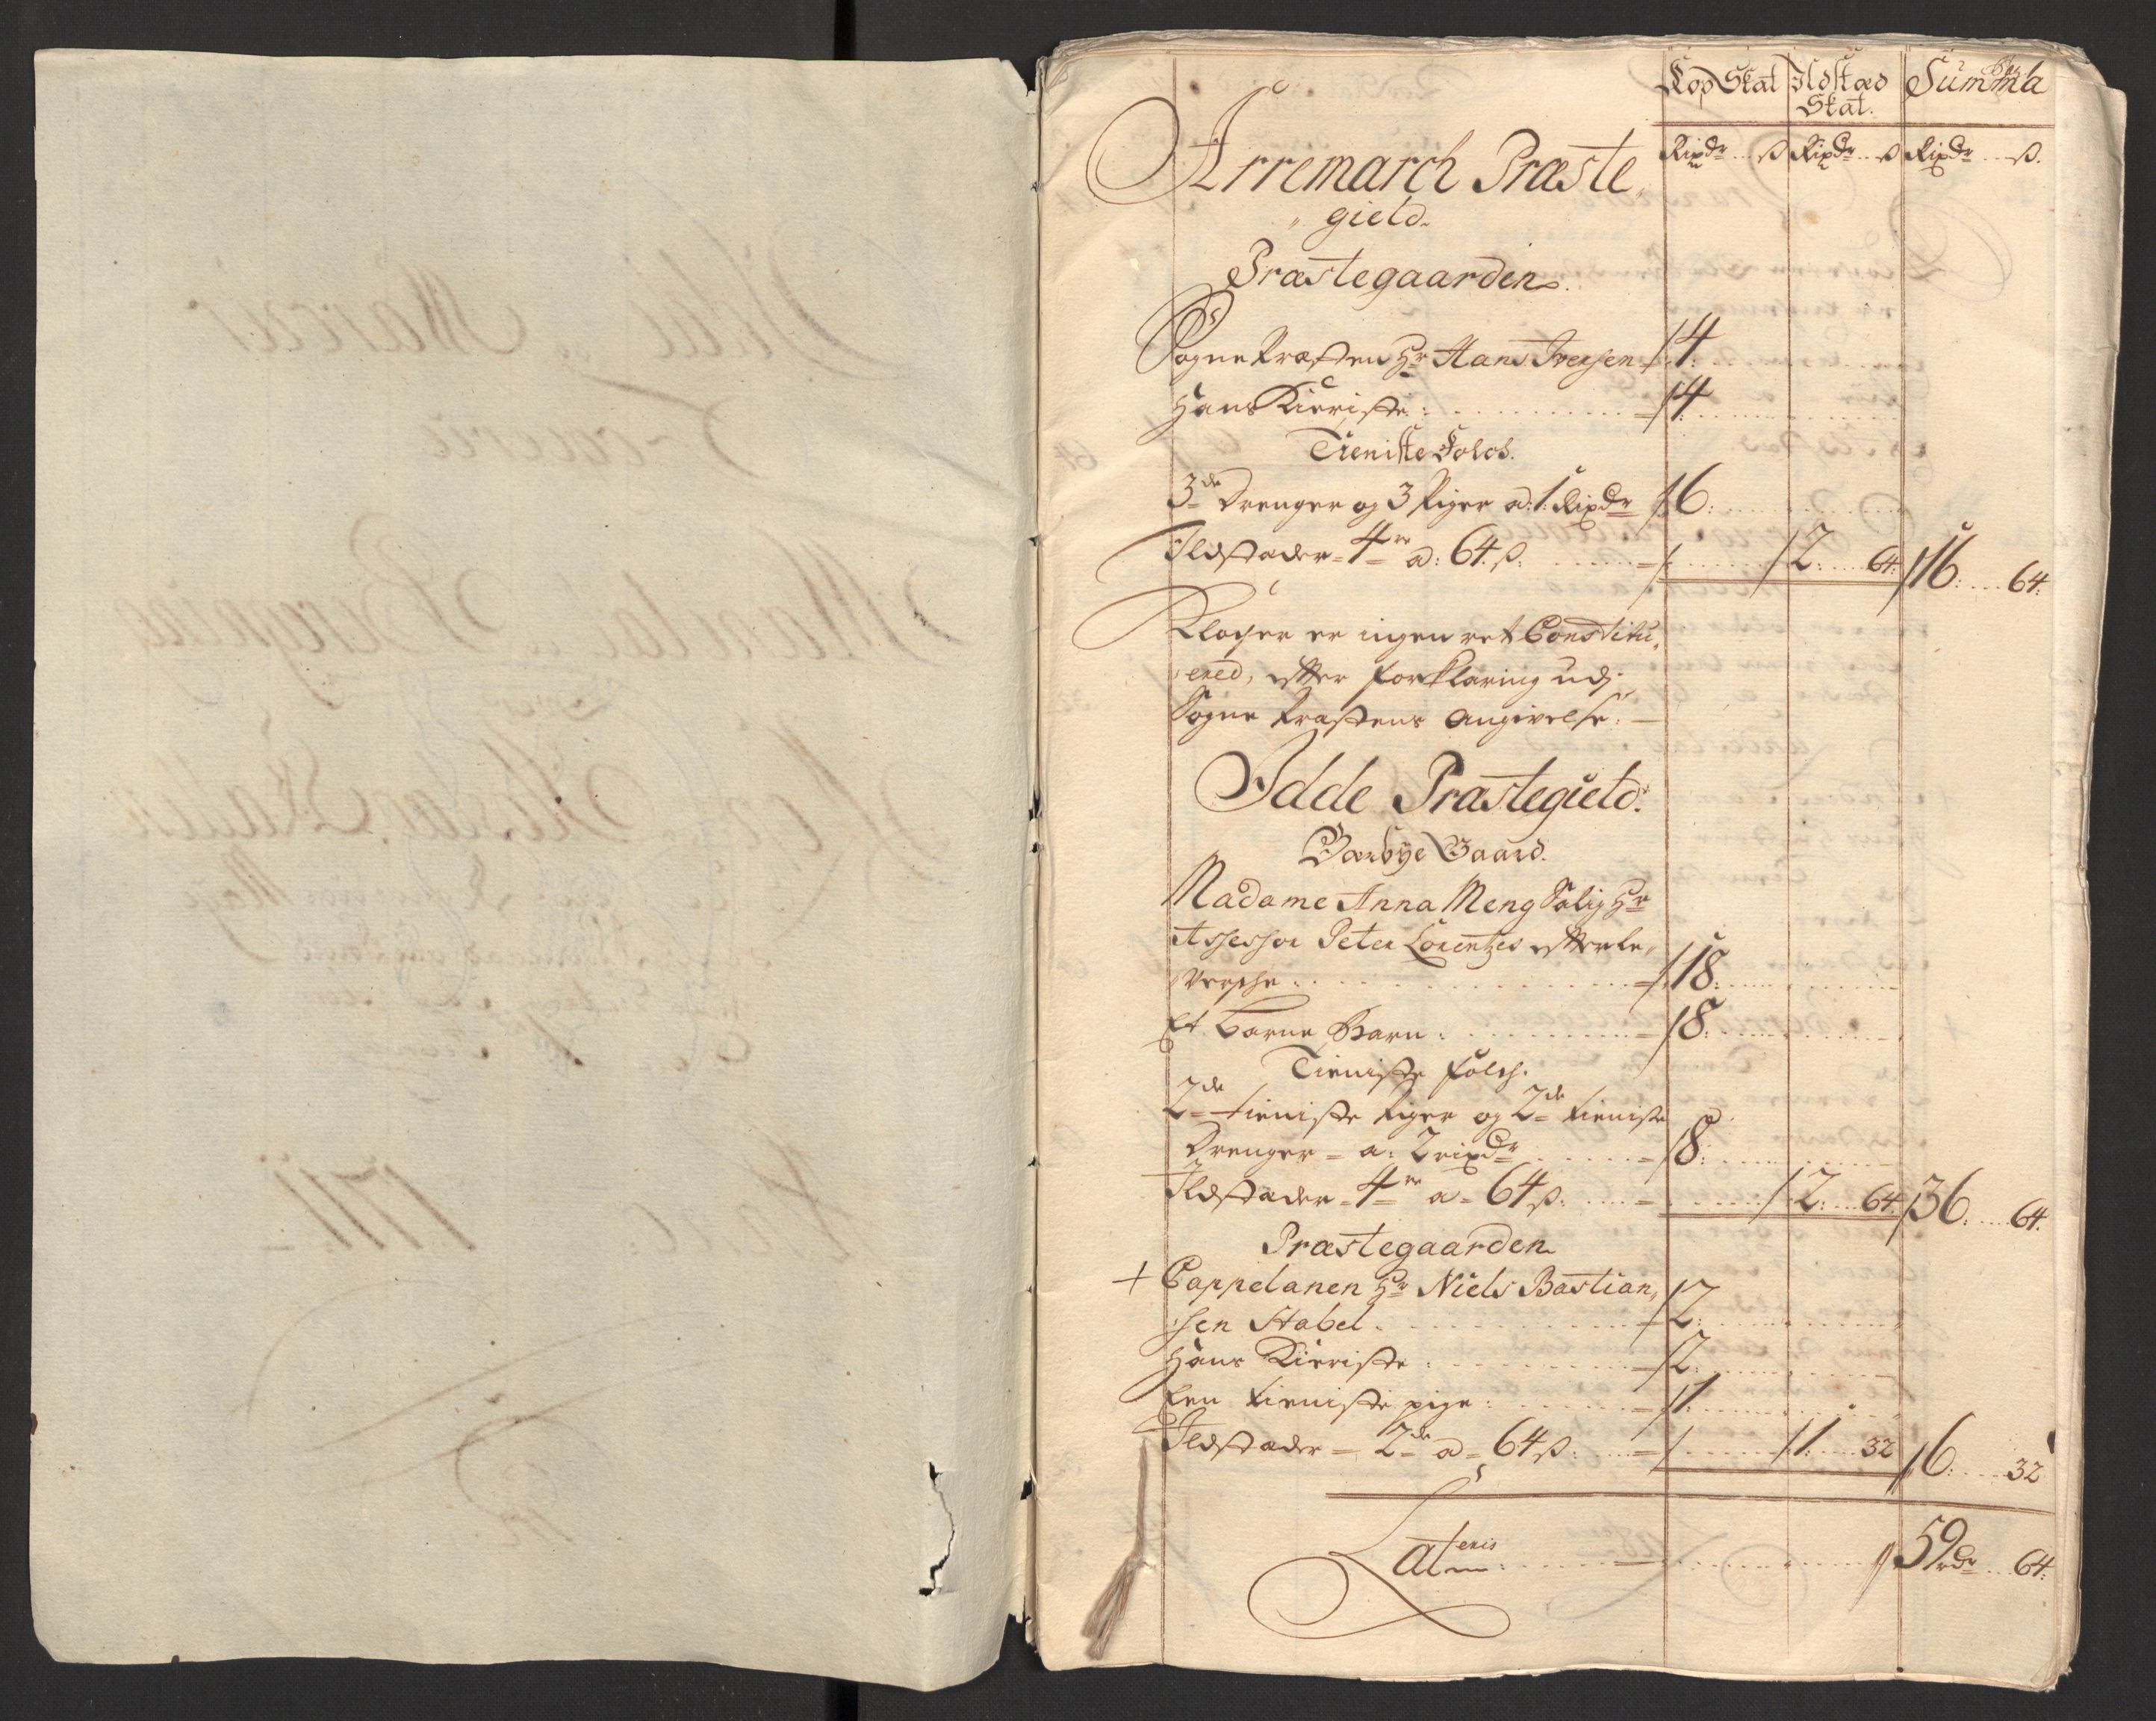 Kop Skat Ildstæd Skat. Summa
Rixdr ß Rixdr ß Rixdr ß.
Arremarch Præste
gield.
Præstegaarden
Sogne Præsten Hr Hans Iversen 4:
Hans Kieriste: 4
Tieniste Folch.
3de Drenger og 3 Piger a: 1: Rixdr 6:
Ildstæder 4re a: 64 ß: 2: 64: 16: 64:
Klocher er ingen ret Constitu,
ered, efter forklaring udj
Sogne Præstens Angivelse:
Idde Præstegield:
Gaard.
Madame Anna Meng Salig Hr
Assessor Peter Lorentzes efterle,
versche: 18:
Et Barne Barn: 8:
Tieniste folch.
2de tieniste Piger og 2de tieniste
Drenger a: 2 rixdr 8:
Ildstæder 4re a 64 ß: 2: 64 36: 64.
Præstegaarden
+ Cappelanen Hr Niels Bastian,
sen Stabel. 2:
Hans Kieriste: 2:
Een tieniste pige: 1:
Ildstæder 2de a 64 ß: 1: 32 6: 32
Lateris: 59 rdr 64:
Anno 1711